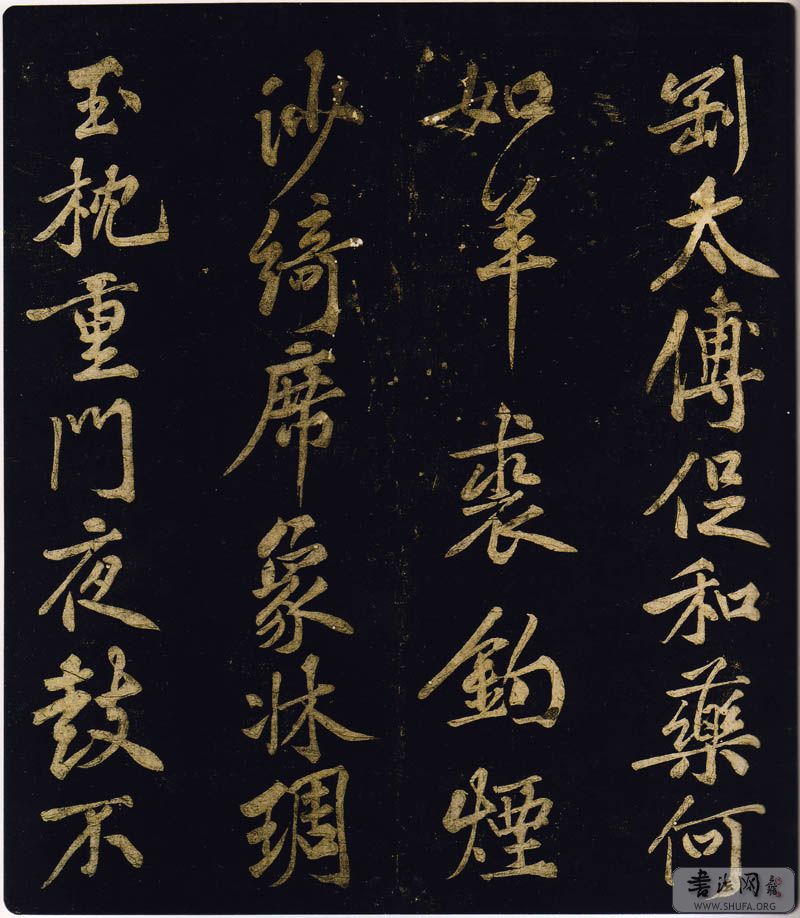 剛太傅促和藥何
如羊裘釣煙
沙綺席象牀琱
玉枕重門夜鼓不
书法网
WWW.SHUFA.ORG